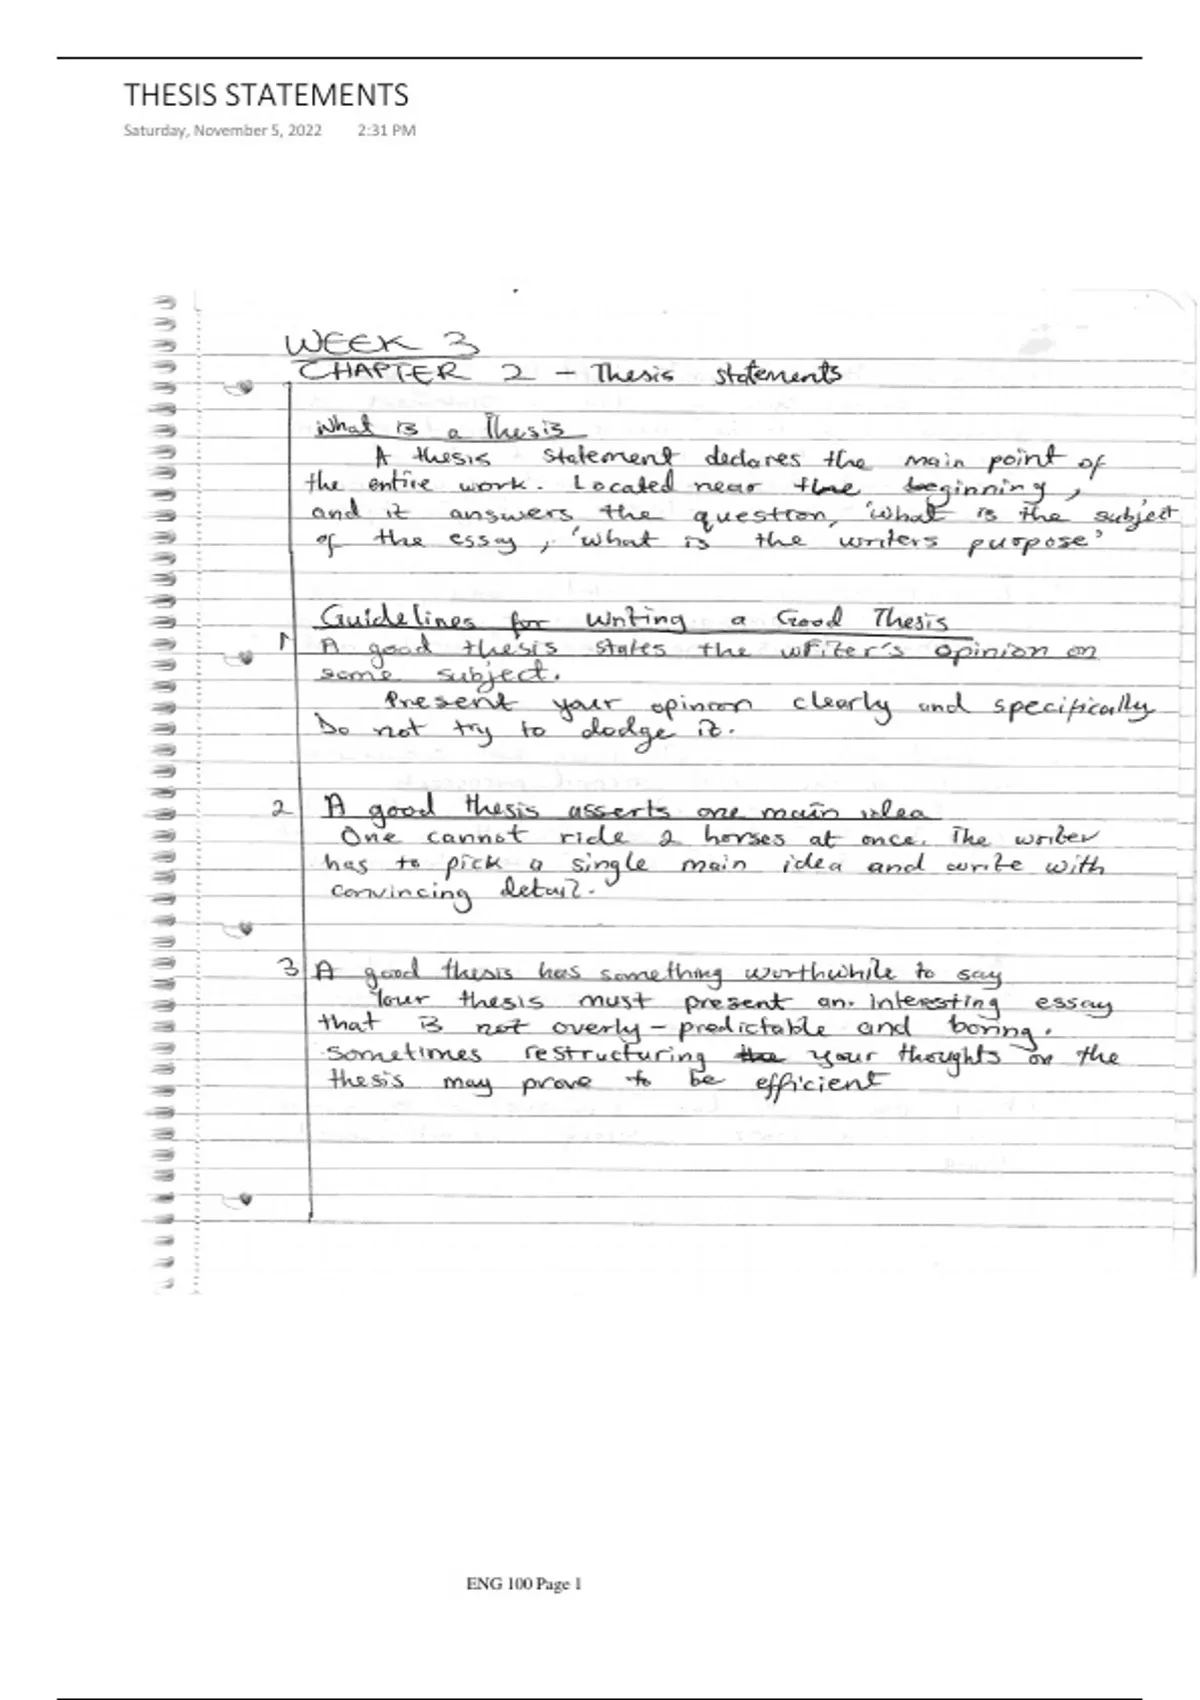 THESIS STATEMENTS
Saturday, November 5, 2022 2:31 PM
WEEK 3
CHAPTER 2 - Thesis statements
What is a Thesis
A thesis statement declares the main point of
the entire work. Located near the beginning,
and it answers the question, 'what is the subject
of the essay, 'what is the writers purpose'
Guidelines for writing a Good Thesis
1 A good thesis states the writer's opinion on
some subject.
Present your opinion clearly and specifically
Do not try to dodge it.
2 A good thesis asserts one main idea
One cannot ride 2 horses at once. The writer
has to pick a single main idea and write with
convincing detail.
3 A good thesis has something worthwhile to say
Your thesis must present an interesting essay
that is not overly-predictable and boring.
sometimes restructuring the your thoughts on the
thesis may prove to be efficient
ENG 100 Page 1